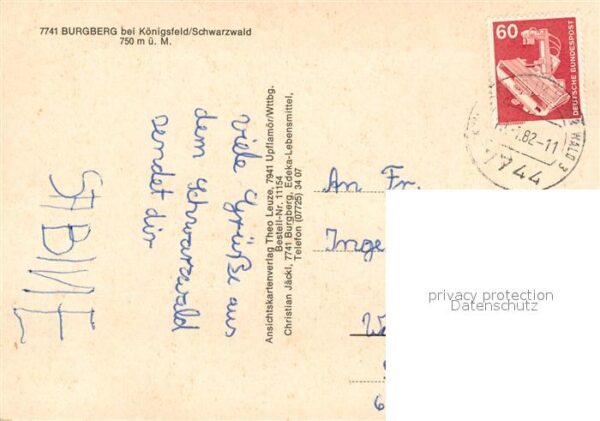 7741 BURGBERG bei Königsfeld/Schwarzwald
750 m ü. M.
viele Grüße aus
dem schwarzwald
sendet dir
SABINE
Ansichtskartenverlag Theo Leuze, 7941 Upflamör/Wttbg.
Bestell-Nr. 11154
Christian Jäckl, 7741 Burgberg, Edeka-Lebensmittel,
Telefon (07725) 34 07
60
DEUTSCHE BUNDESPOST
.82-11
WALD
7744
An Fr.
Inge
W
6
privacy protection
Datenschutz